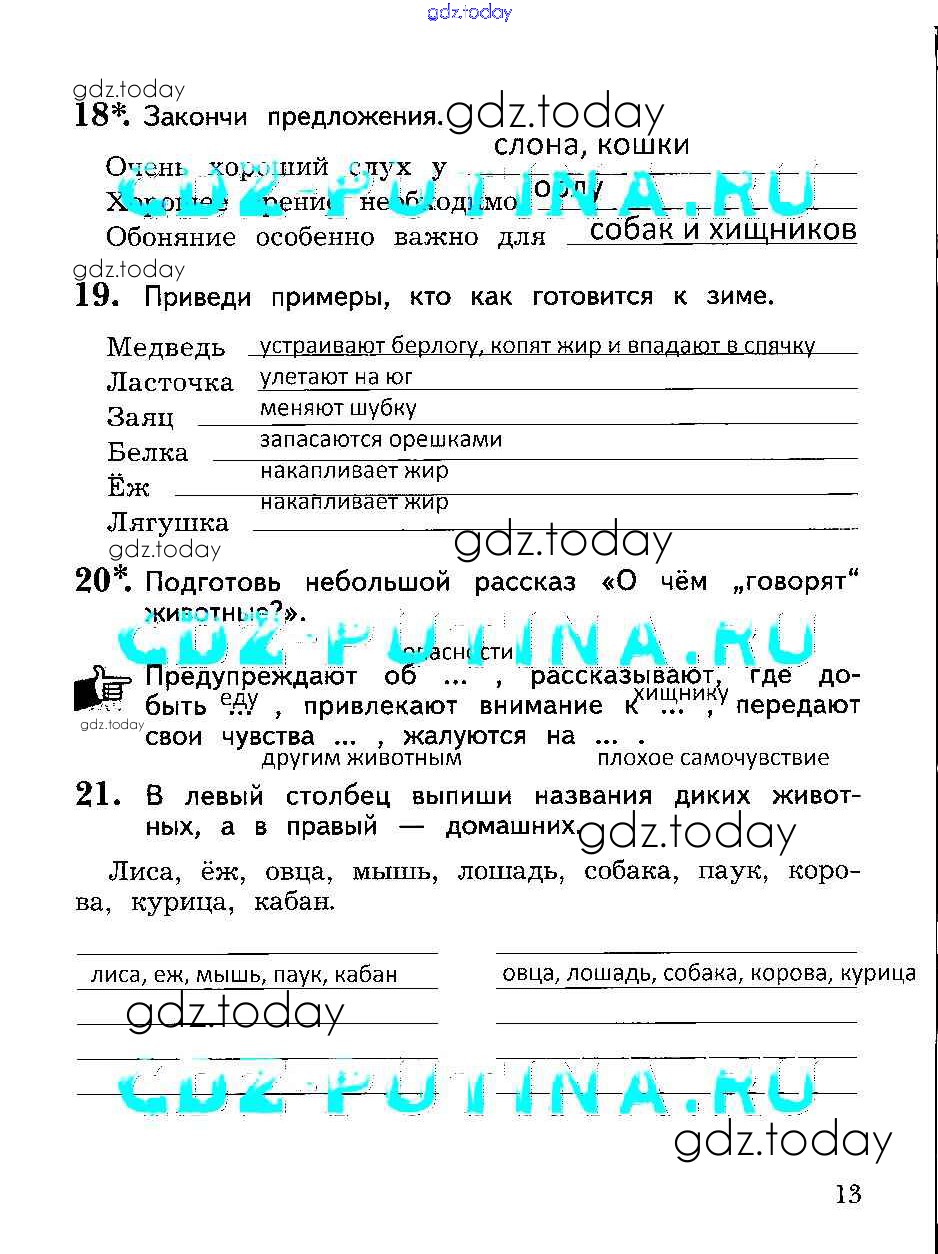 gdz.today
gdz.today
18*. Закончи предложения. gdz.today
слона, кошки
Очень хороший слух у
Хорошее зрение необходимо орлу
GDZ-PUTINA.RU
Обоняние особенно важно для собак и хищников
gdz.today
19. Приведи примеры, кто как готовится к зиме.
Медведь устраивают берлогу, копят жир и впадают в спячку
Ласточка улетают на юг
Заяц меняют шубку
Белка запасаются орешками
Ёж накапливает жир
Лягушка накапливает жир
gdz.today gdz.today
20*. Подготовь небольшой рассказ «О чём „говорят“
животные?».
GDZ-PUTINA.RU
опасности
Предупреждают об ... , рассказывают, где до-
быть ... , привлекают внимание к ... , передают
еду хищнику
gdz.today
свои чувства ... , жалуются на ... .
другим животным плохое самочувствие
21. В левый столбец выпиши названия диких живот-
ных, а в правый — домашних.
gdz.today
Лиса, ёж, овца, мышь, лошадь, собака, паук, коро-
ва, курица, кабан.
лиса, еж, мышь, паук, кабан овца, лошадь, собака, корова, курица
gdz.today
GDZ-PUTINA.RU
gdz.today
13